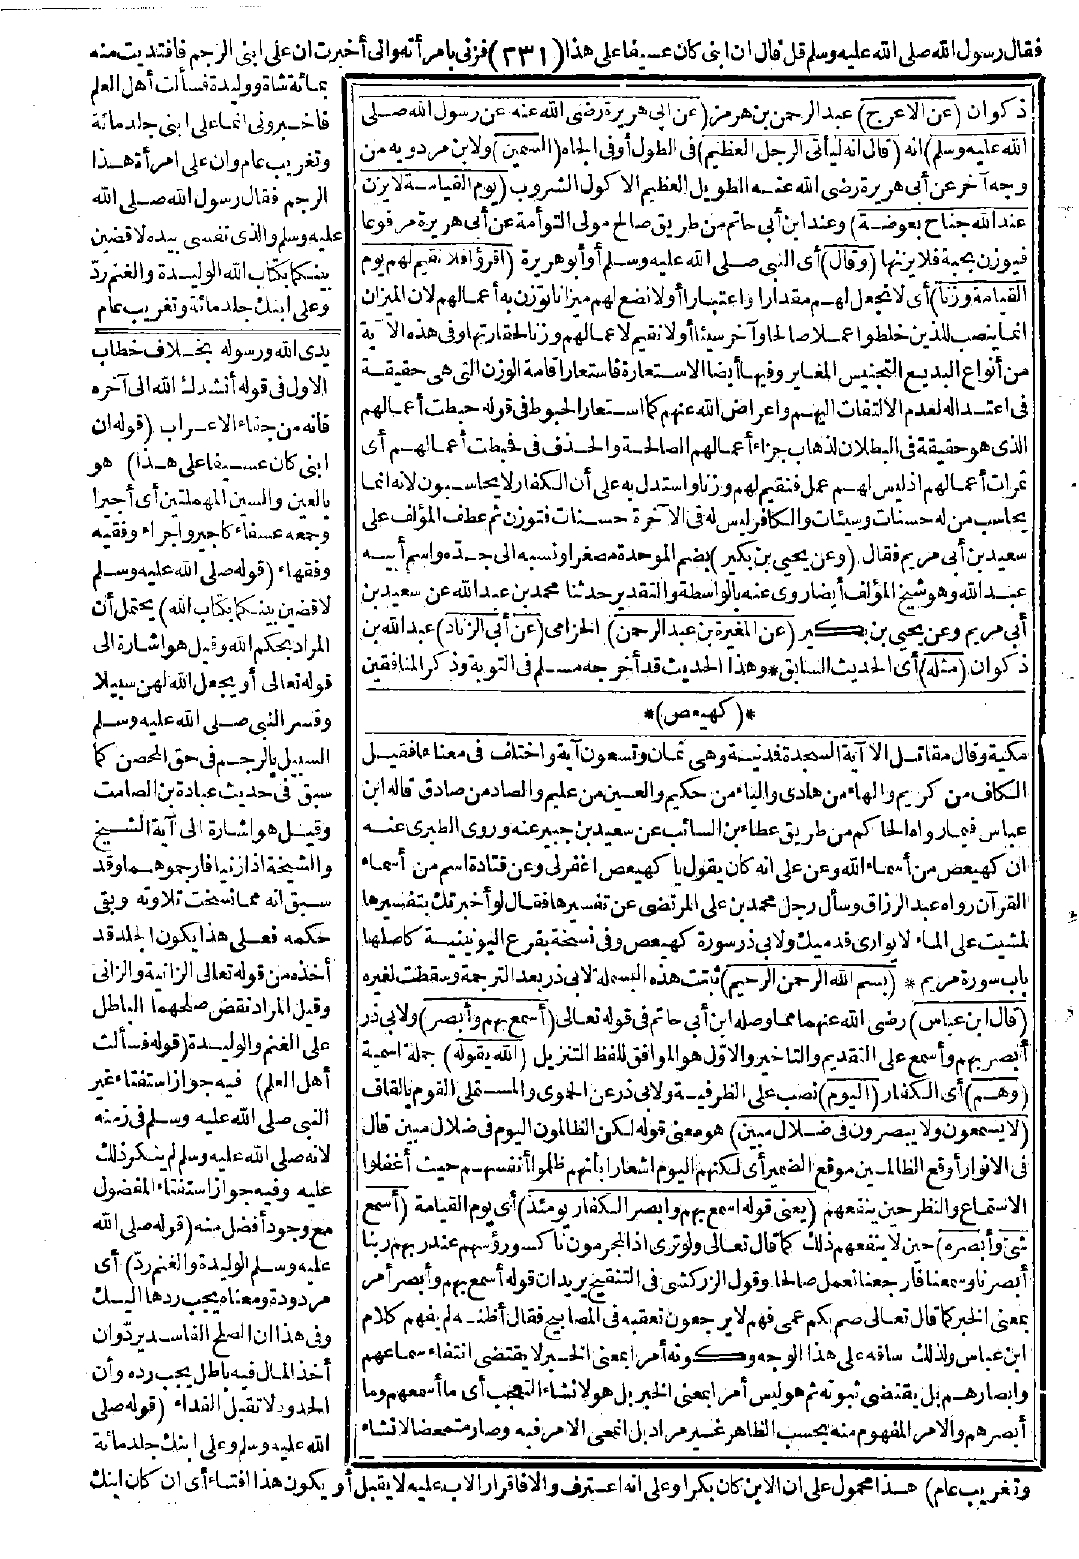 فقال رسول الله صلى الله عليه وسلم قل قال ان ابنى كان عسيفا على هذا (٢٣١) فزنى بامرأته وانى أخبرت ان على ابنى الرجم فافتديت منه
بمائة شاة ووليدة فسألت أهل العلم
فاخبرونى انما على ابنى جلد مائة
وتغريب عام وان على امرأة هذا
الرجم فقال رسول الله صلى الله
عليه وسلم والذى نفسى بيده لاقضين
بينكما بكتاب الله الوليدة والغنم ردّ
وعلى ابنك جلد مائة وتغريب عام
ذكوان (عن الاعرج) عبد الرحمن بن هرمز (عن ابى هريرة رضى الله عنه عن رسول الله صلى
الله عليه وسلم) انه (قال انه ليأتى الرجل العظيم) فى الطول أو فى الجاه (السمين) ولابن مردويه من
وجه آخر عن أبى هريرة رضى الله عنه الطويل العظيم الاكول الشروب (يوم القيامة لا يزن
عند الله جناح بعوضة) وعند ابن أبى حاتم من طريق صالح مولى التوأمة عن أبى هريرة مرفوعا
فيوزن بحبة فلا يزنها (وقال) أى النبى صلى الله عليه وسلم أو أبو هريرة (اقرؤا فلا نقيم لهم يوم
القيامة وزنا) أى لا نجعل لهم مقدارا واعتبارا أو لا نضع لهم ميزانا توزن به أعمالهم لان الميزان
انما ينصب للذين خلطوا عملا صالحا وآخر سيئا أو لا نقيم لاعمالهم وزنا لحقارتها وفى هذه الآية
من أنواع البديع التجنيس المغاير وفيها أيضا الاستعارة فاستعار اقامة الوزن التى هى حقيقة
فى اعتداله لعدم الالتفات اليهم واعراض الله عنهم كما استعار الحبوط فى قوله حبطت أعمالهم
الذى هو حقيقة فى البطلان لذهاب جزاء أعمالهم الصالحة والحذف فى فحبطت أعمالهم أى
ثمرات أعمالهم اذ ليس لهم عمل فنقيم لهم وزنا واستدل به على أن الكفار لا يحاسبون لانه انما
يحاسب من له حسنات وسيئات والكافر ليس له فى الآخرة حسنات فتوزن ثم عطف المؤلف على
سعيد بن أبى مريم فقال (وعن يحيى بن بكير) بضم الموحدة مصغرا ونسبه الى جده واسم أبيه
عبد الله وهو شيخ المؤلف أيضا روى عنه بالواسطة والتقدير حدثنا محمد بن عبد الله عن سعيد بن
أبى مريم وعن يحيى بن بكير (عن المغيرة بن عبد الرحمن) الحزامى (عن أبى الزناد) عبد الله بن
ذكوان (مثله) أى الحديث السابق * وهذا الحديث قد أخرجه مسلم فى التوبة وذكر المنافقين
*(كهيعص)*
مكية وقال مقاتل الا آية السجدة فمدنية وهى ثمان وتسعون آية واختلف فى معناه فقيل
الكاف من كريم والهاء من هادى والياء من حكيم والعين من عليم والصاد من صادق قاله ابن
عباس فيما رواه الحاكم من طريق عطاء بن السائب عن سعيد بن جبير عنه وروى الطبرى عنه
ان كهيعص من أسماء الله وعن على انه كان يقول يا كهيعص اغفر لى وعن قتادة اسم من أسماء
القرآن رواه عبد الرزاق وسأل رجل محمد بن على المرتضى عن تفسيرها فقال لو أخبرتك بتفسيرها
لمشيت على الماء لا يوارى قدميك ولابى ذر سورة كهيعص وفى نسخة بفرع اليونينية كاصلها
باب سورة مريم * (بسم الله الرحمن الرحيم) ثبتت هذه البسملة لابى ذر بعد الترجمة وسقطت لغيره
(قال ابن عباس) رضى الله عنهما مما وصله ابن أبى حاتم فى قوله تعالى (أسمع بهم وأبصر) ولابى ذر
أبصر بهم وأسمع على التقديم والتاخير والاوّل هو الموافق للفظ التنزيل (الله يقوله) جملة اسمية
(وهم) أى الكفار (اليوم) نصب على الظرفية ولابى ذر عن الحموى والمستملى القوم بالقاف
(لا يسمعون ولا يبصرون فى ضلال مبين) هو معنى قوله لكن الظالمون اليوم فى ضلال مبين قال
فى الانوار أوقع الظالمين موقع الضمير أى لكنهم اليوم اشعارا بأنهم ظلموا أنفسهم حيث أغفلوا
الاستماع والنظر حين ينفعهم (يعنى قوله اسمع بهم وابصر الكفار يومئذ) أى يوم القيامة (أسمع
شئ وأبصره) حين لا ينفعهم ذلك كما قال تعالى ولو ترى اذ المجرمون ناكسو رؤسهم عند ربهم ربنا
أبصرنا وسمعنا فارجعنا نعمل صالحا وقول الزركشى فى التنقيح يريد ان قوله أسمع بهم وأبصر أمر
بمعنى الخبر كما قال تعالى صم بكم عمى فهم لا يرجعون تعقبه فى المصابيح فقال أظنه لم يفهم كلام
ابن عباس ولذلك ساقه على هذا الوجه وكونه أمرا بمعنى الخبر لا يقتضى انتفاء سماعهم
وابصارهم بل يقتضى ثبوته ثم هو ليس أمرا بمعنى الخبر بل هو لانشاء التعجب أى ما أسمعهم وما
أبصرهم والامر المفهوم منه بحسب الظاهر غير مراد بل انمحى الامر فيه وصار متمحضا لانشاء
يدى الله ورسوله بخلاف خطاب
الاول فى قوله أنشدك الله الى آخره
فانه من جفاء الاعراب (قوله ان
ابنى كان عسيفا على هذا) هو
بالعين والسين المهملتين أى أجيرا
وجمعه عسفاء كاجير واجراء وفقيه
وفقهاء (قوله صلى الله عليه وسلم
لاقضين بينكما بكتاب الله) يحتمل أن
المراد بحكم الله وقيل هو اشارة الى
قوله تعالى أو يجعل الله لهن سبيلا
وفسر النبى صلى الله عليه وسلم
السبيل بالرجم فى حق المحصن كما
سبق فى حديث عبادة بن الصامت
وقيل هو اشارة الى آية الشيخ
والشيخة اذا زنيا فارجموهما وقد
سبق انه مما نسخت تلاوته وبقى
حكمه فعلى هذا يكون الجلد قد
أخذه من قوله تعالى الزانية والزانى
وقيل المراد نقض صلحهما الباطل
على الغنم والوليدة (قوله فسألت
أهل العلم) فيه جواز استفتاء غير
النبى صلى الله عليه وسلم فى زمنه
لانه صلى الله عليه وسلم لم ينكر ذلك
عليه وفيه جواز استفتاء المفضول
مع وجود أفضل منه (قوله صلى الله
عليه وسلم الوليدة والغنم ردّ) أى
مردودة ومعناه يجب ردها اليك
وفى هذا ان الصلح الفاسد يردّ وان
أخذ المال فيه باطل يجب رده وأن
الحدود لا تقبل الفداء (قوله صلى
الله عليه وسلم وعلى ابنك جلد مائة
وتغريب عام) هذا محمول على ان الابن كان بكرا وعلى انه اعترف والا فاقرار الاب عليه لا يقبل أو يكون هذا افتاء أى ان كان ابنك